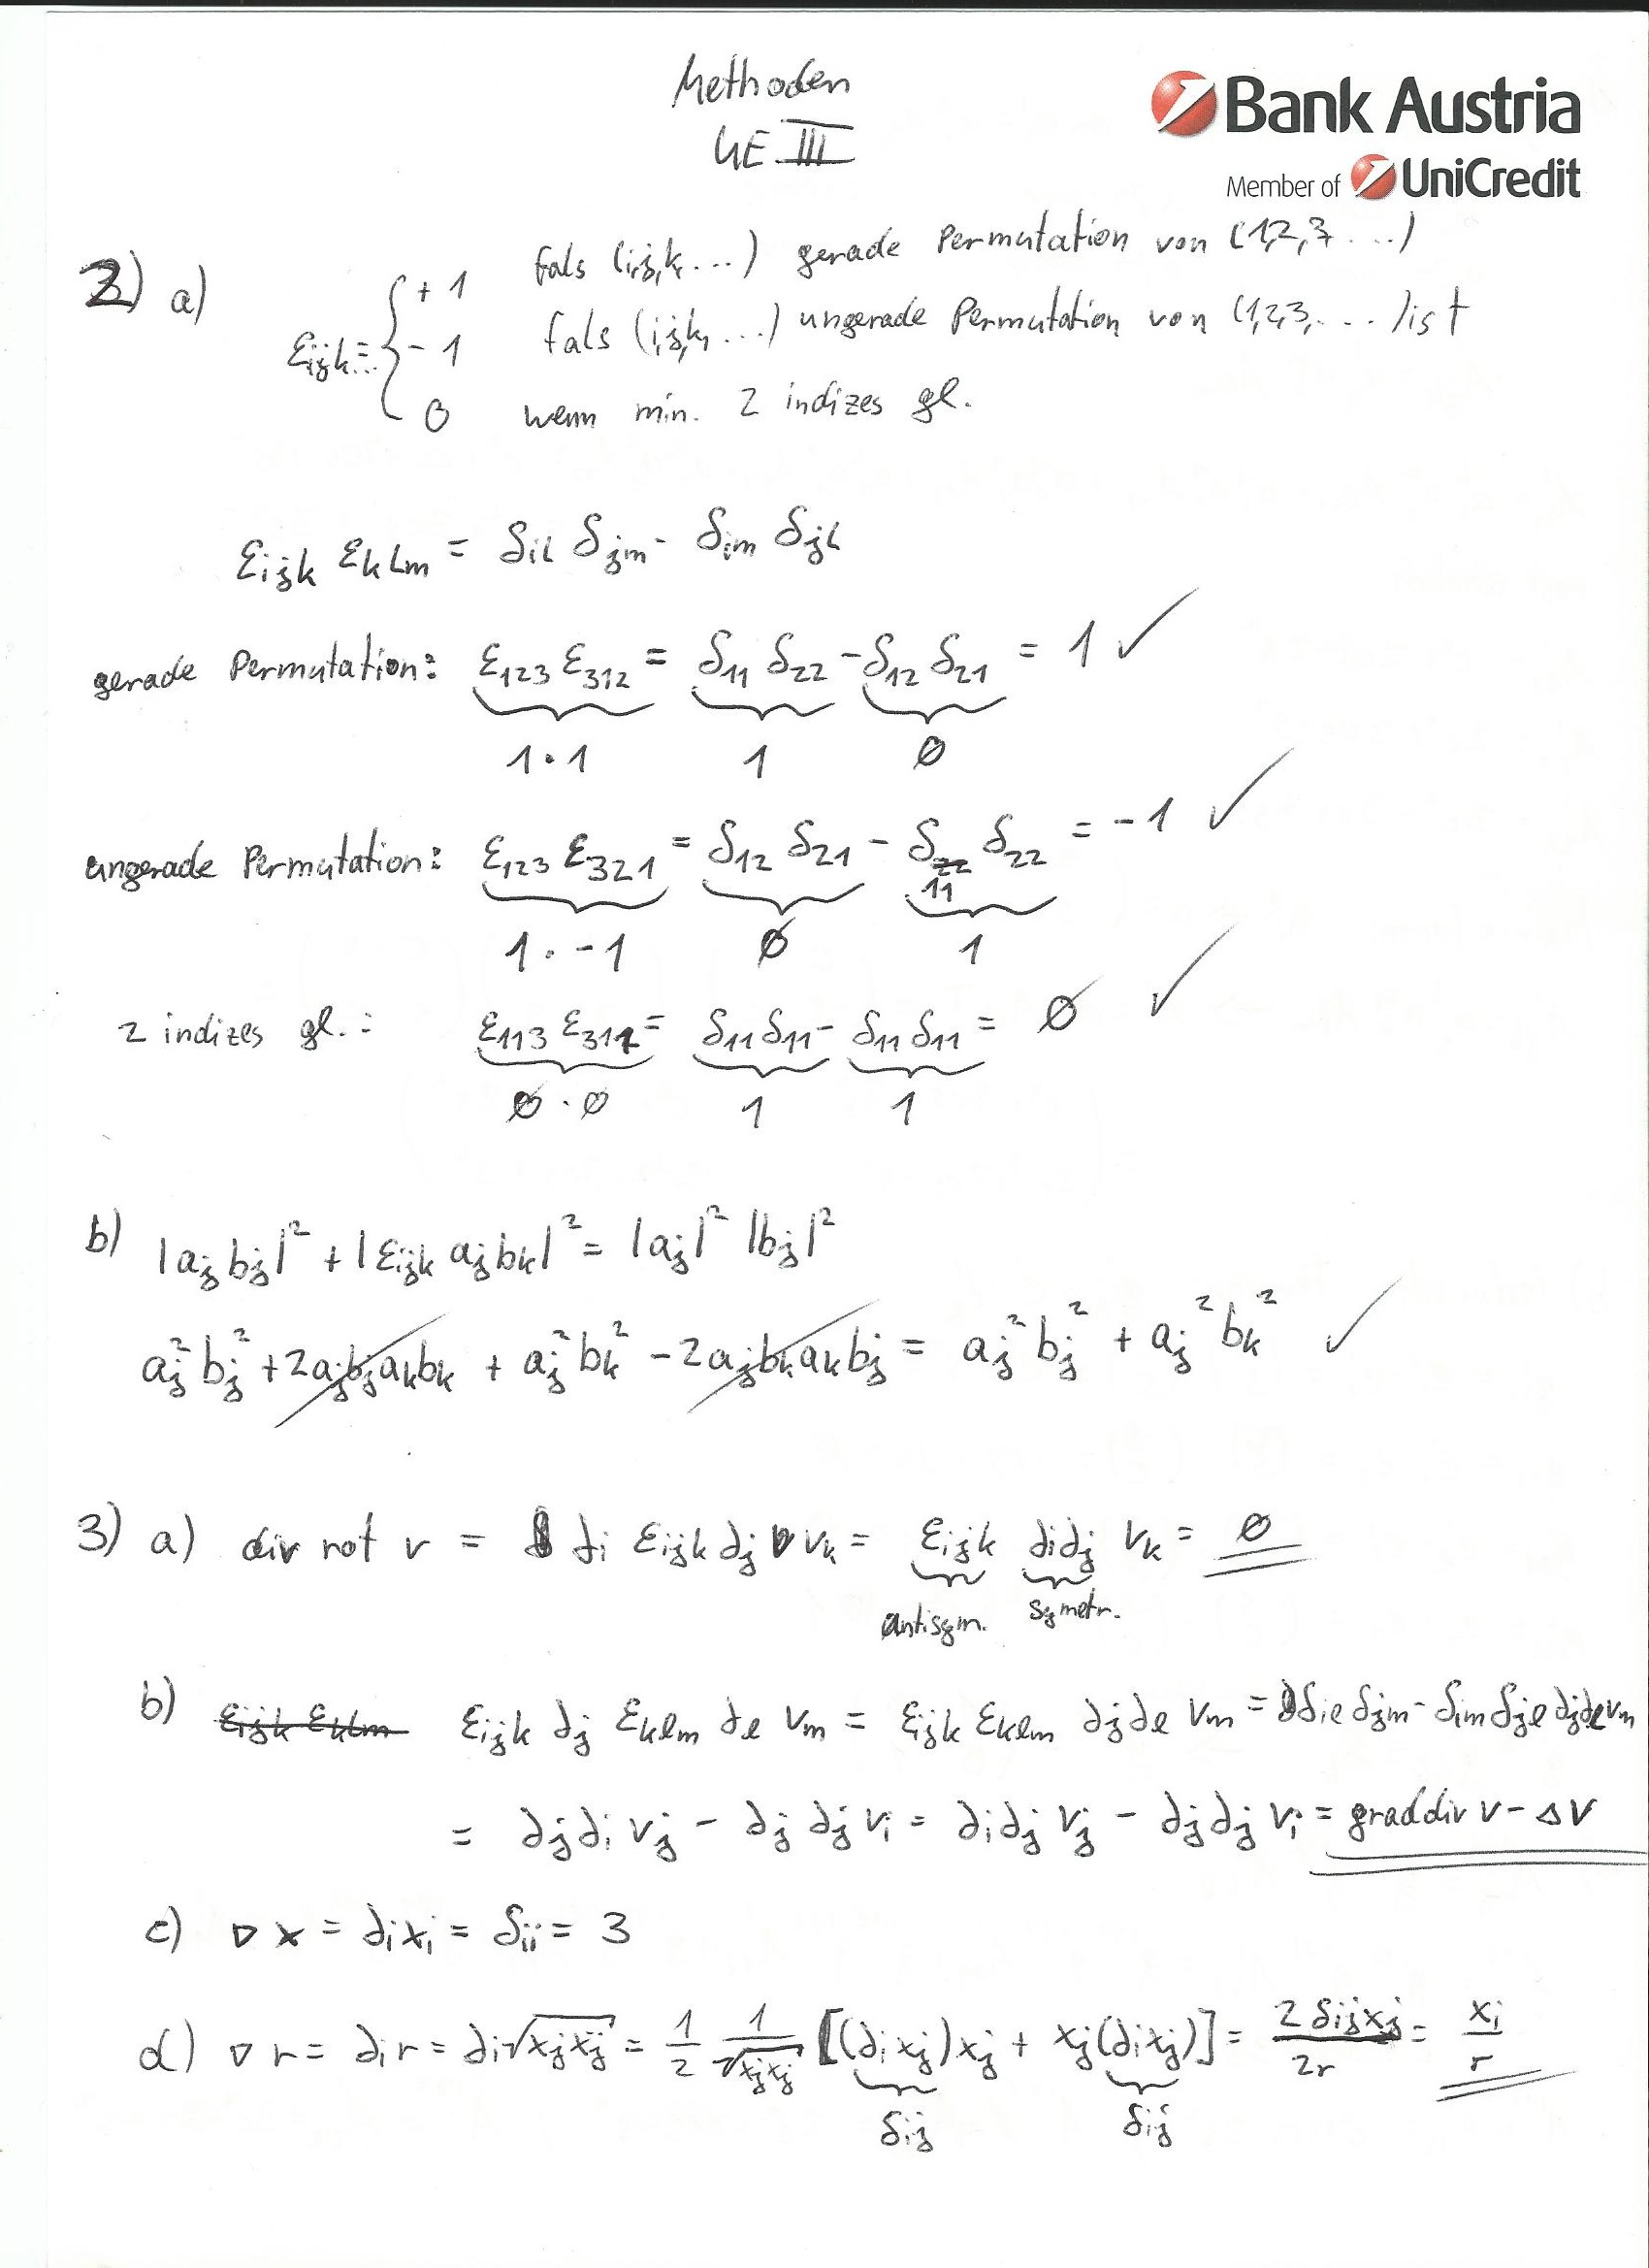 Methoden
UE III
Bank Austria
Member of UniCredit
2) a) ε_ijk... = { +1 fals (i,j,k, ...) gerade Permutation von (1,2,3, ...)
-1 fals (i,j,k, ...) ungerade Permutation von (1,2,3, ...) ist
0 wenn min. 2 indizes gl.
ε_ijk ε_klm = δ_il δ_jm - δ_im δ_jl
gerade Permutation: ε_123 ε_312 = δ_11 δ_22 - δ_12 δ_21 = 1 ✓
1·1 1 0
ungerade Permutation: ε_123 ε_321 = δ_12 δ_21 - δ_11 δ_22 = -1 ✓
1·-1 0 1
2 indizes gl.: ε_113 ε_311 = δ_11 δ_11 - δ_11 δ_11 = 0 ✓
0·0 1 1
b) |a_j b_j|² + |ε_ijk a_j b_k|² = |a_j|² |b_j|²
a_j² b_j² + 2a_j b_j a_k b_k + a_j² b_k² - 2a_j b_k a_k b_j = a_j² b_j² + a_j² b_k² ✓
3) a) div rot v = ∂_i ε_ijk ∂_j v_k = ε_ijk ∂_i ∂_j v_k = 0
antisym. symetr.
b) ε_ijk ε_klm ε_ijk ∂_j ε_klm ∂_l v_m = ε_ijk ε_klm ∂_j ∂_l v_m = δ_il δ_jm - δ_im δ_jl ∂_j ∂_l v_m
= ∂_j ∂_i v_j - ∂_j ∂_j v_i = ∂_i ∂_j v_j - ∂_j ∂_j v_i = grad div v - Δv
c) ∇x = ∂_i x_i = δ_ii = 3
d) ∇r = ∂_i r = ∂_i √(x_j x_j) = 1/2 1/√(x_j x_j) [(∂_i x_j) x_j + x_j (∂_i x_j)] = 2 δ_ij x_j / 2r = x_i / r
δ_ij δ_ij